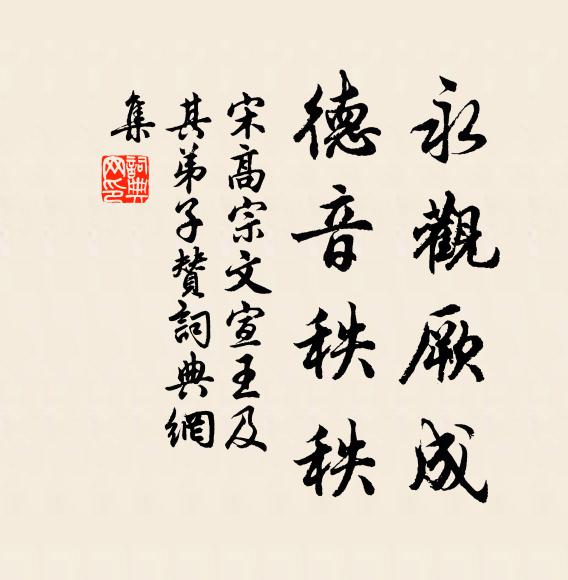 永觀厥成
德音秩秩
宋高宗文宣王及
其弟子贊詞典網
集
詞典網印